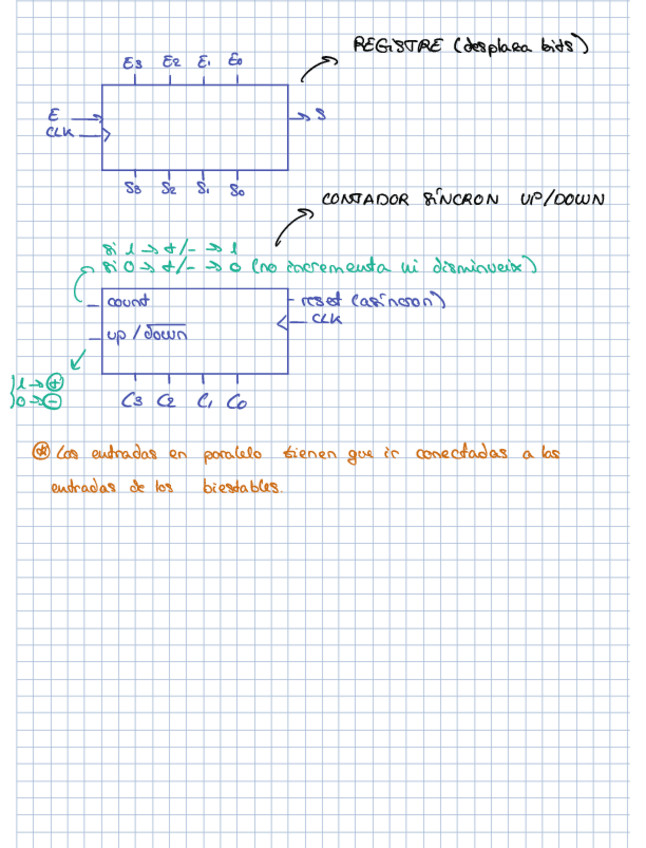 REGISTRE (desplaza bits)
E3 E2 E1 E0
E
CLK
S
S3 S2 S1 S0
CONTADOR SÍNCRON UP/DOWN
si 1 → +/- → 1
si 0 → +/- → 0 (no incrementa ni disminueix)
count
reset (asíncron)
CLK
up / down
1 → +
0 → -
C3 C2 C1 C0
* Las entradas en paralelo tienen que ir conectadas a las
entradas de los biestables.